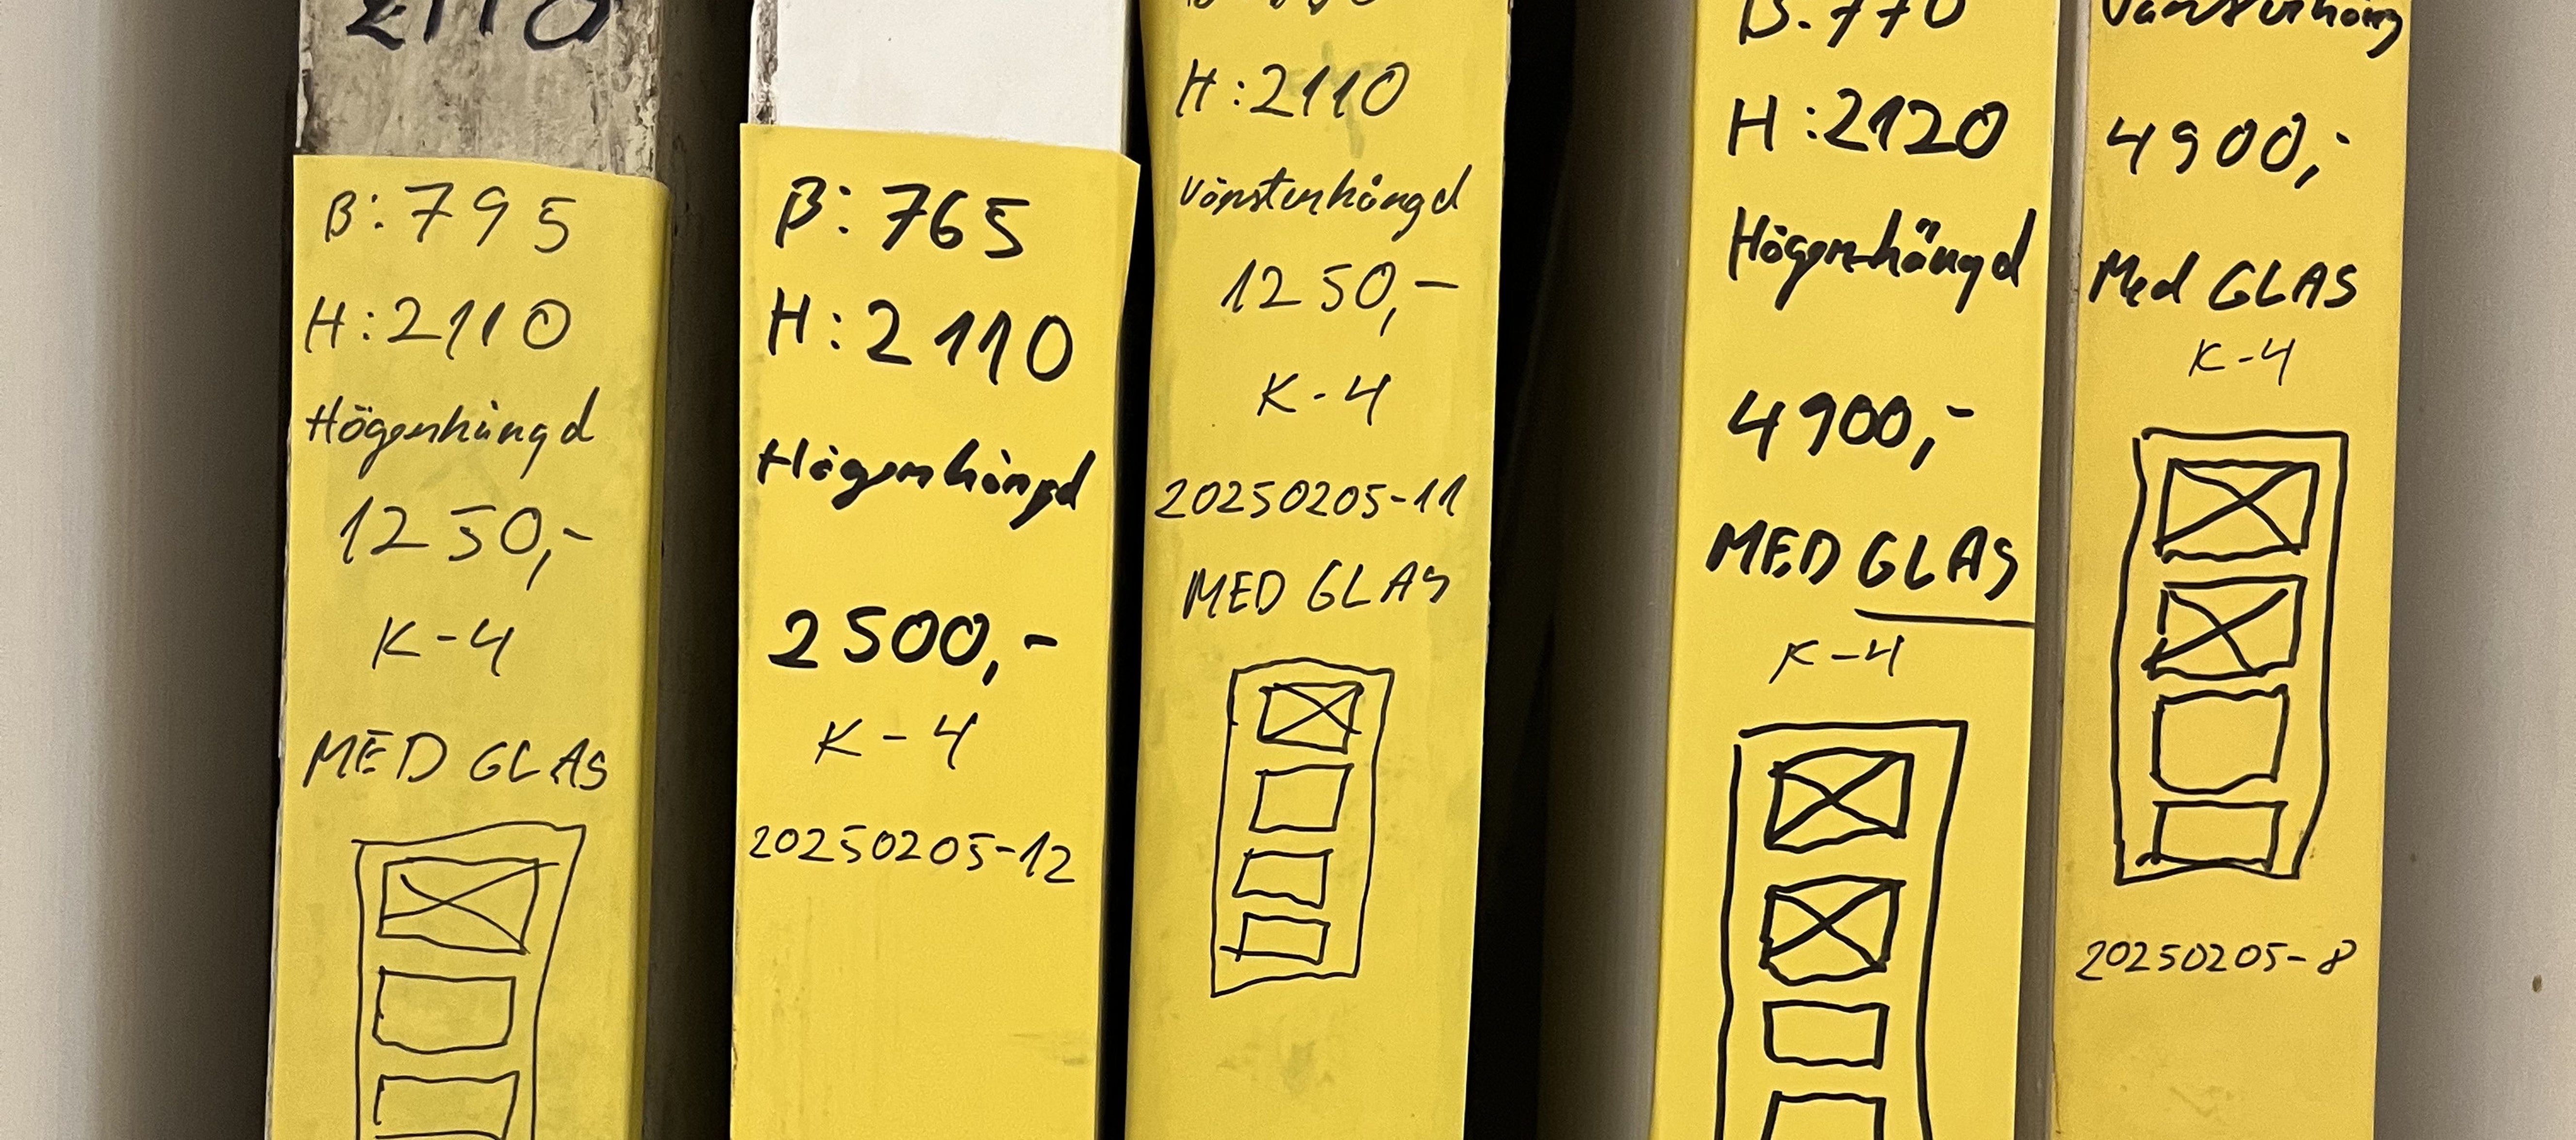 2110
B:795
H:2110
Högerhängd
1250,-
K-4
MED GLAS
B:765
H:2110
Högerhängd
2500,-
K-4
20250205-12
H:2110
Vänsterhängd
1250,-
K-4
20250205-11
MED GLAS
B:770
H:2120
Högerhängd
4900,-
MED GLAS
K-4
Vänsterhäng
4900,-
Med GLAS
K-4
20250205-8